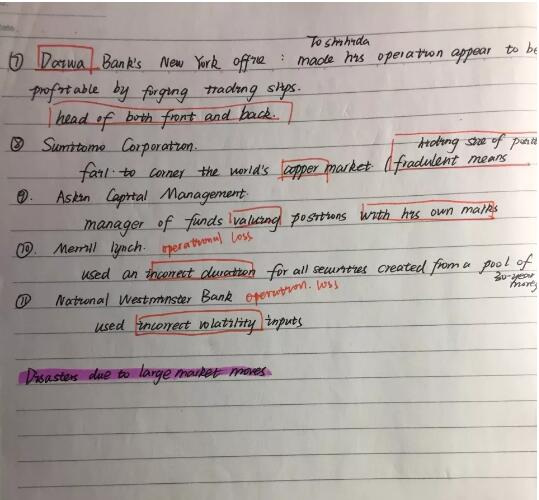 Toshihida
⑦ Daiwa Bank's New York office : made his operation appear to be
profitable by forging trading slips.
head of both front and back.
⑧ Sumitomo Corporation. hiding size of
fail to corner the world's copper market (fradulent means
⑨. Askin Capital Management.
manager of funds valuing positions with his own marks
⑩. Merrill lynch. operational loss
used an incorrect duration for all securities created from a pool of
30-year
⑪ National Westminster Bank operation. loss
used incorrect volatility inputs
Disasters due to large market moves